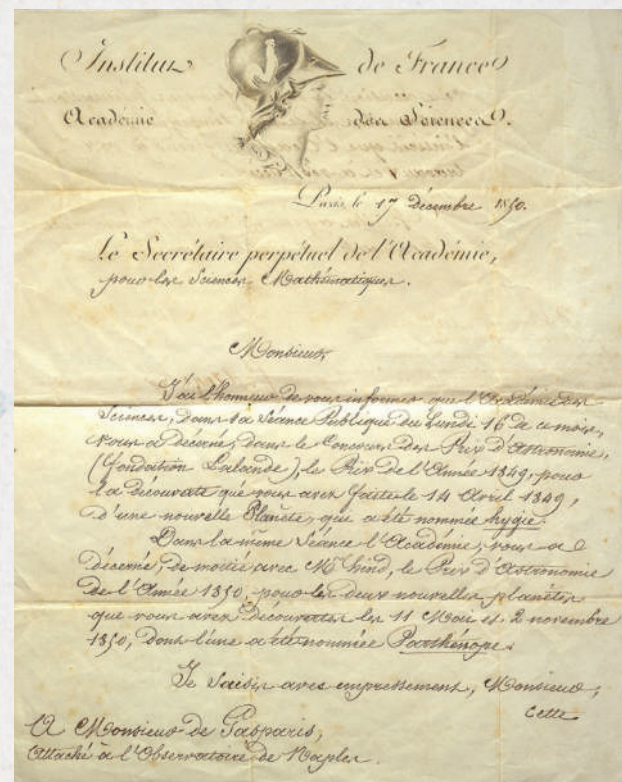 Institut de France
Académie des Sciences.
Paris, le 17 Décembre 1850.
Le Secrétaire perpétuel de l'Académie,
pour les Sciences Mathématiques.
Monsieur,
J'ai l'honneur de vous informer que l'Académie des
Sciences, dans sa Séance Publique du Lundi 16 de ce mois,
vous a Décerné, dans le Concours des Prix d'Astronomie,
(fondation Lalande), le Prix de l'Année 1849, pour
la Découverte que vous avez faite le 14 Avril 1849,
d'une nouvelle Planète, qui a été nommée hygie.
Dans la même Séance l'Académie, vous a
Décerné, de moitié avec Mr hind, le Prix d'Astronomie
de l'Année 1850, pour les deux nouvelles planètes
que vous avez Découvertes les 11 Mai et 2 novembre
1850, dont l'une a été nommée Parthénope.
Je saisis avec empressement, Monsieur,
cette
A Monsieur de Gasparis,
Attaché à l'Observatoire de Naples.